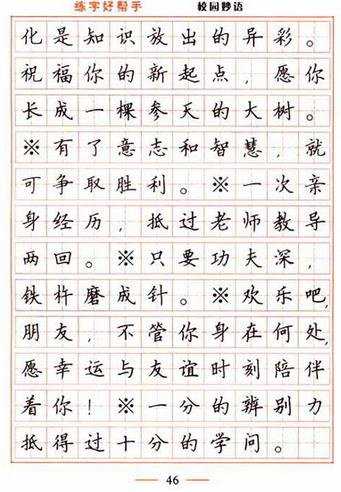 练字好帮手 校园妙语
化是知识放出的异彩。
祝福你的新起点，愿你
长成一棵参天的大树。
※有了意志和智慧，就
可争取胜利。※一次亲
身经历，抵过老师教导
两回。※只要功夫深，
铁杵磨成针。※欢乐吧，
朋友，不管你身在何处，
愿幸运与友谊时刻陪伴
着你！※一分的辨别力
抵得过十分的学问。
46